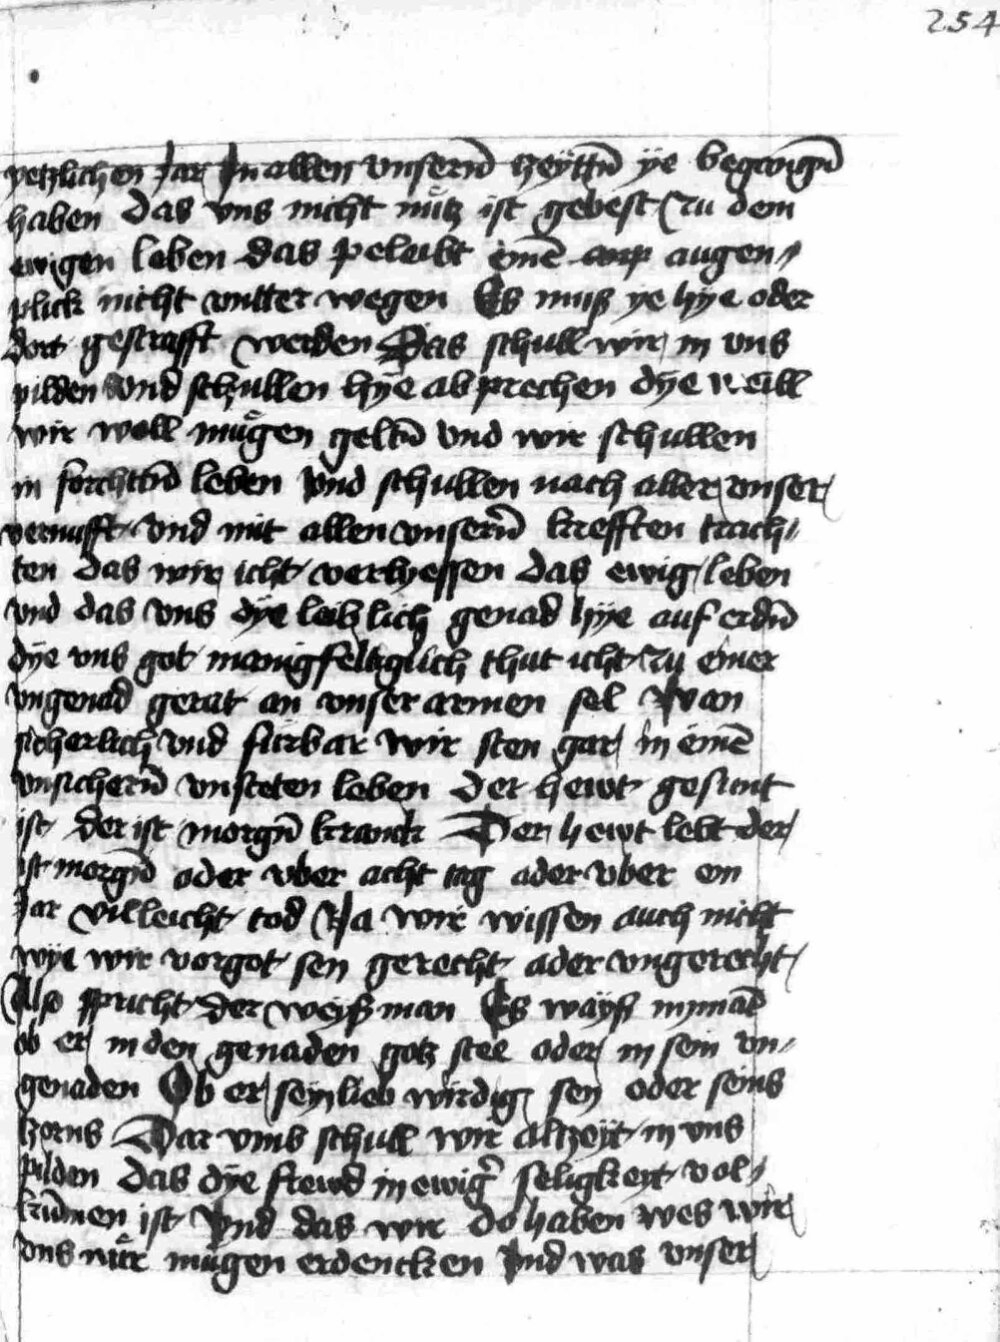 254
yetzlichen Jar Jn allen vnserñ zeyttñ ye begangñ
haben das vns nicht nütz ist gebest zu dem
ewigen leben das peleibt eine͂ augen〃
plick nicht vntter wegen Es muß ye hye oder
dort gestrafft werden Das schull wir in vns
pilden vnd schullen hye ab prechen dye weill
wir woll mügen geltñ vnd wir schullen
in forchtñ leben vnd schullen nach aller vnser
vernufft vnd mit allen vnserñ krefften trach〃
ten das wir icht verlyessen das ewig leben
vnd das vns dye leiblich genad hye auf erdñ
dye vns got manigfeltiglich thut icht zu einer
vngenad gerat an vnser armen sel Wan
sicherlich vnd fürbar wir sten gar in eine͂
vnsicherñ vnsteten leben der hewt gesunt
ist der ist morgñ kranck Der hewt lebt der
ist morgñ oder vber acht tag ader vber ein
Jar villeicht tod Ja wir wissen auch nicht
wye wir vor got sen gerecht ader vngerecht
Also spricht der weyß man Es wayß nyma͂t
ob er in den genaden gotz stee oder in sein vn〃
genaden Ob er seyn lieb wirdig sey oder seins
zorns Dar vmb schull wir altzeyt in vns
pilden das dye frewd in ewig̃ seligkeyt vol〃
kume͂n ist Vnd das wir do haben wes wir
vns nür mügen erdencken Vnd was vnser